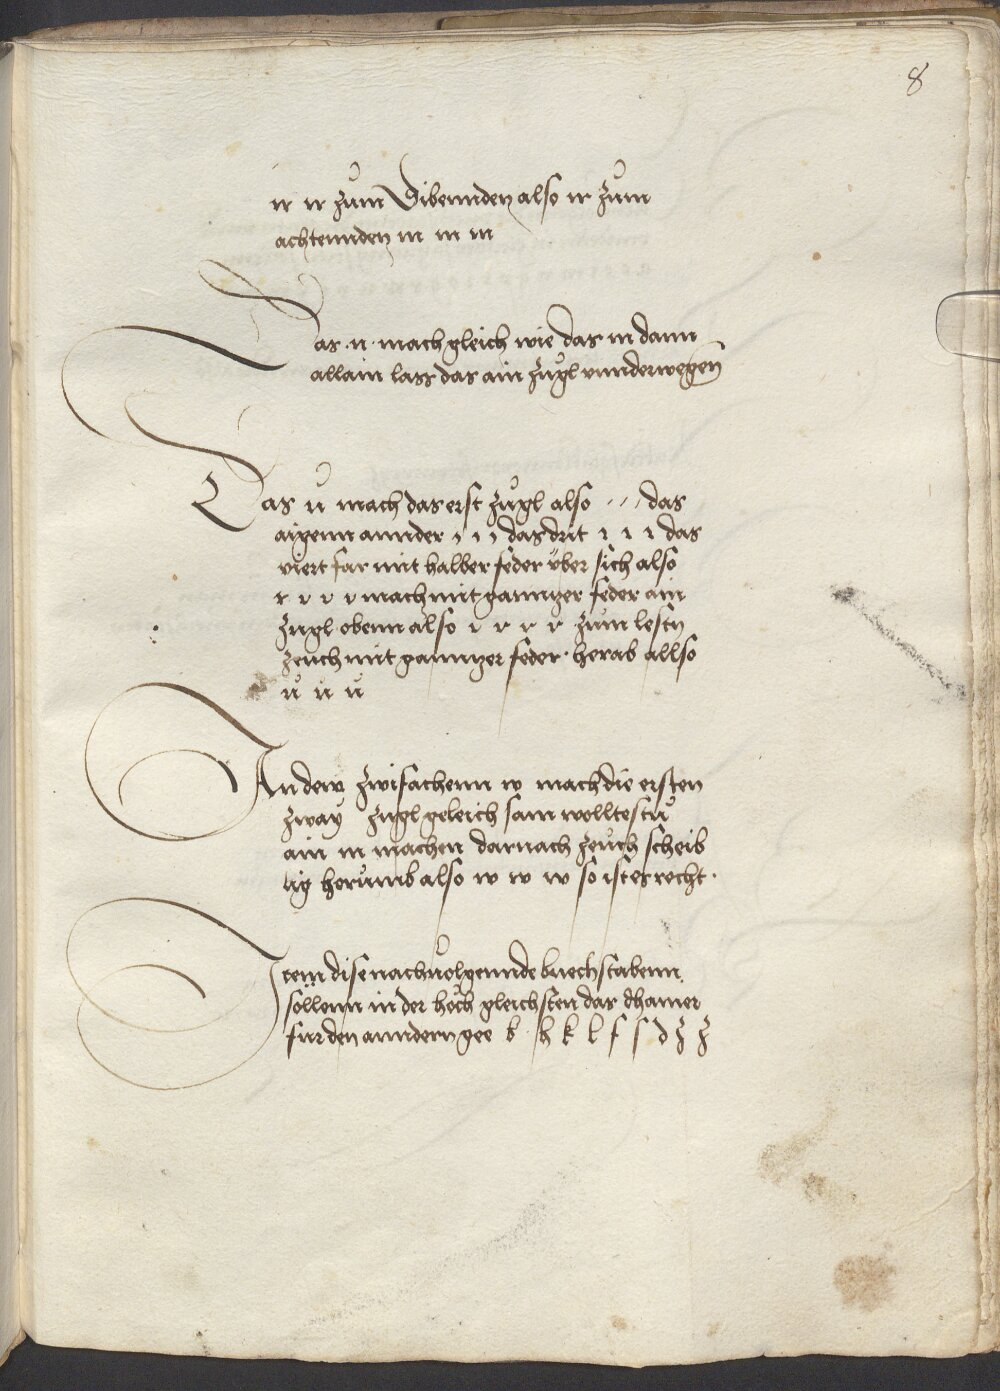 8
ir ir zům Sibennden also ir zům
achtennden m m m
Das .n. mach gleich wie das m dann
allain lass das ain zůgl vnnderwegen
Das ů mach das erst zůgl also das
aigenn annder das drit ı ı ı das
viert far mit halber feder über sich also
r v v v mach mit ganntzer feder ain
zugl obenn also v v v v zům lestn
zeuch mit ganntzer feder herab allso
ů ů ů
In dem zwifachenn w mach die ersten
zway zugl geleich sam wolltestu
ain m machen darnach zeuch scheib
lig herumb also w w w so ist es recht.
Item dise nachuolgennde buechstabenn
sollenn in der höch gleichsten das khainer
fur den anndern gee b h k l f s d z z